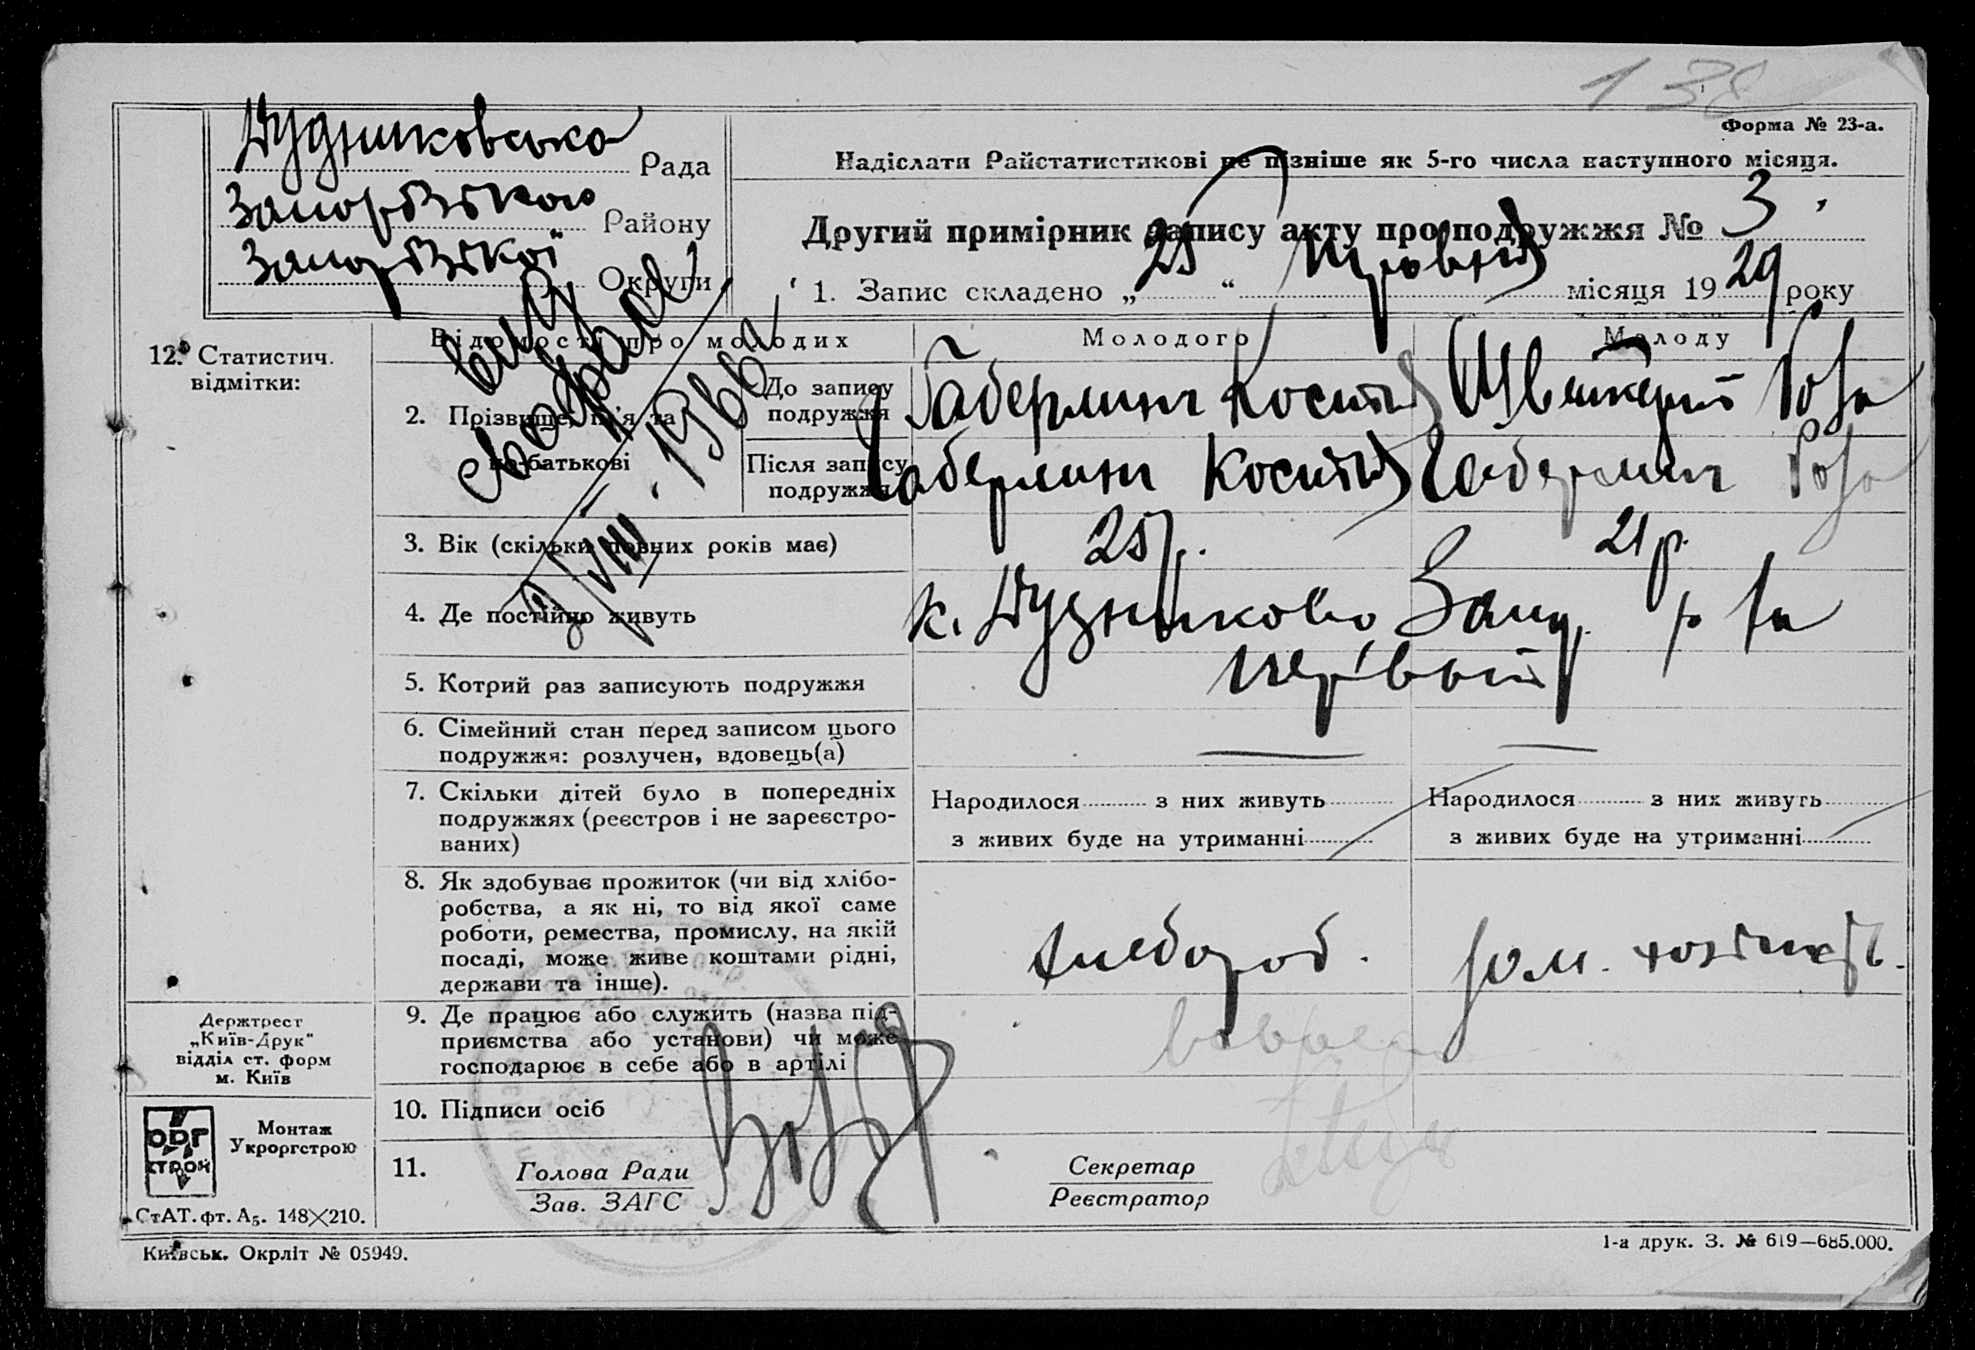 138
Форма № 23-а.
Дудниковська Рада
Запорізького Району
Запорізької Округи
Надіслати Райстатистикові не пізніше як 5-го числа наступного місяця.
Другий примірник запису акту про подружжя № 3
1. Запис складено „25“ місяця 1929 року
12. Статистич.
відмітки:
Відомості про молодих
Молодого
Молоду
2. Прізвище, ім'я та
по-батькові
До запису
подружжя
Габерлинг Роза
Після запису
подружжя
Габерлинг Габерлинг Роза
вид.
свид. брак
9/VIII. 1966
3. Вік (скільки повних років має)
25 р.
21 р.
4. Де постійно живуть
к. Дудниково Запор. р-на
5. Котрий раз записують подружжя
первый
6. Сімейний стан перед записом цього
подружжя: розлучен, вдовець(а)
7. Скільки дітей було в попередніх
подружжях (реєстров і не зареєстро-
ваних)
Народилося з них живуть
з живих буде на утриманні
Народилося з них живуть
з живих буде на утриманні
8. Як здобуває прожиток (чи від хлібо-
робства, а як ні, то від якої саме
роботи, ремества, промислу, на якій
посаді, може живе коштами рідні,
держави та інше).
хлебороб.
дом. хозяйств.
9. Де працює або служить (назва під-
приємства або установи) чи може
господарює в себе або в артілі
10. Підписи осіб
11. Голова Ради
Зав. ЗАГС
Секретар
Реєстратор
Держтрест
„Київ-Друк“
відділ ст. форм
м. Київ
ОРГ
СТРОЙ
Монтаж
Укроргстрою
СтАТ. фт. А₅. 148×210.
Київськ. Окрліт № 05949.
1-а друк. З. № 619—685.000.